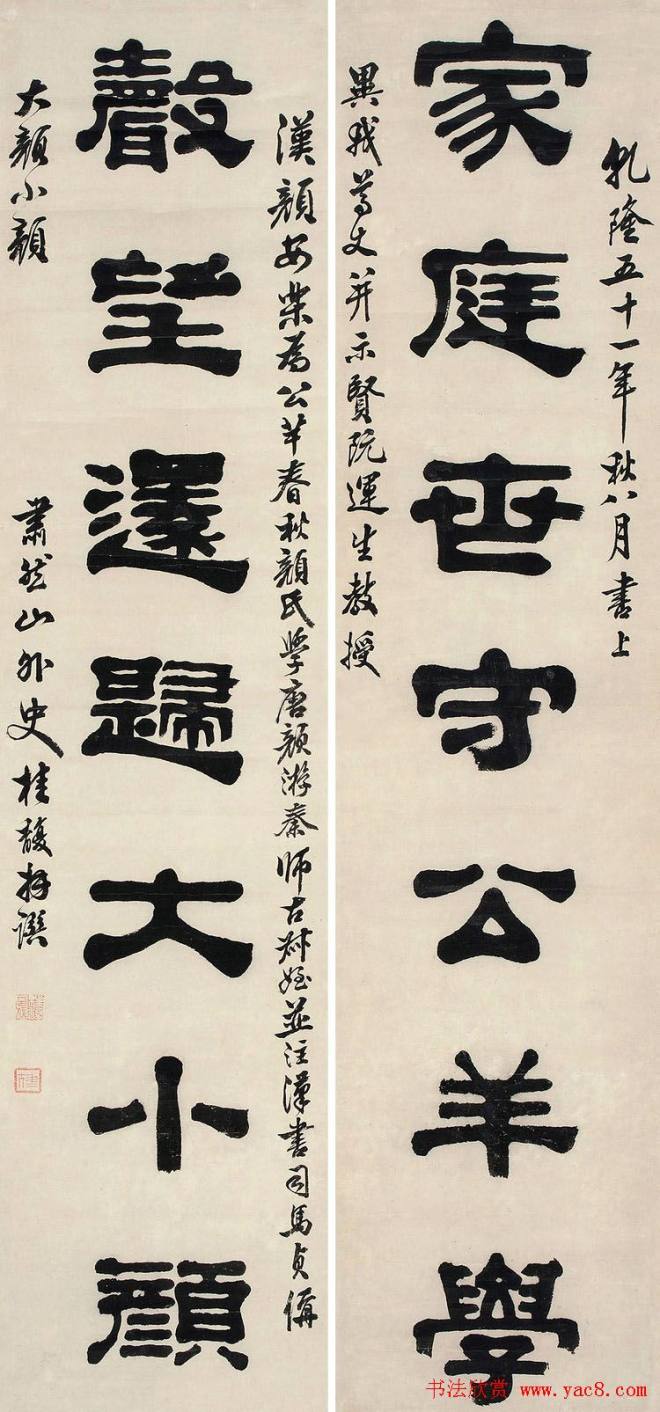 乾隆五十一年秋八月書上
家庭世守公羊學
我尊丈并示賢阮運生教授
漢顏安樂為公羊春秋顏氏學唐顏游秦師古叔姪並注漢書司馬貞偁
聲望還歸大小顏
大顏小顏
肅然山外史桂馥并譔
书法欣赏 www.yac8.com